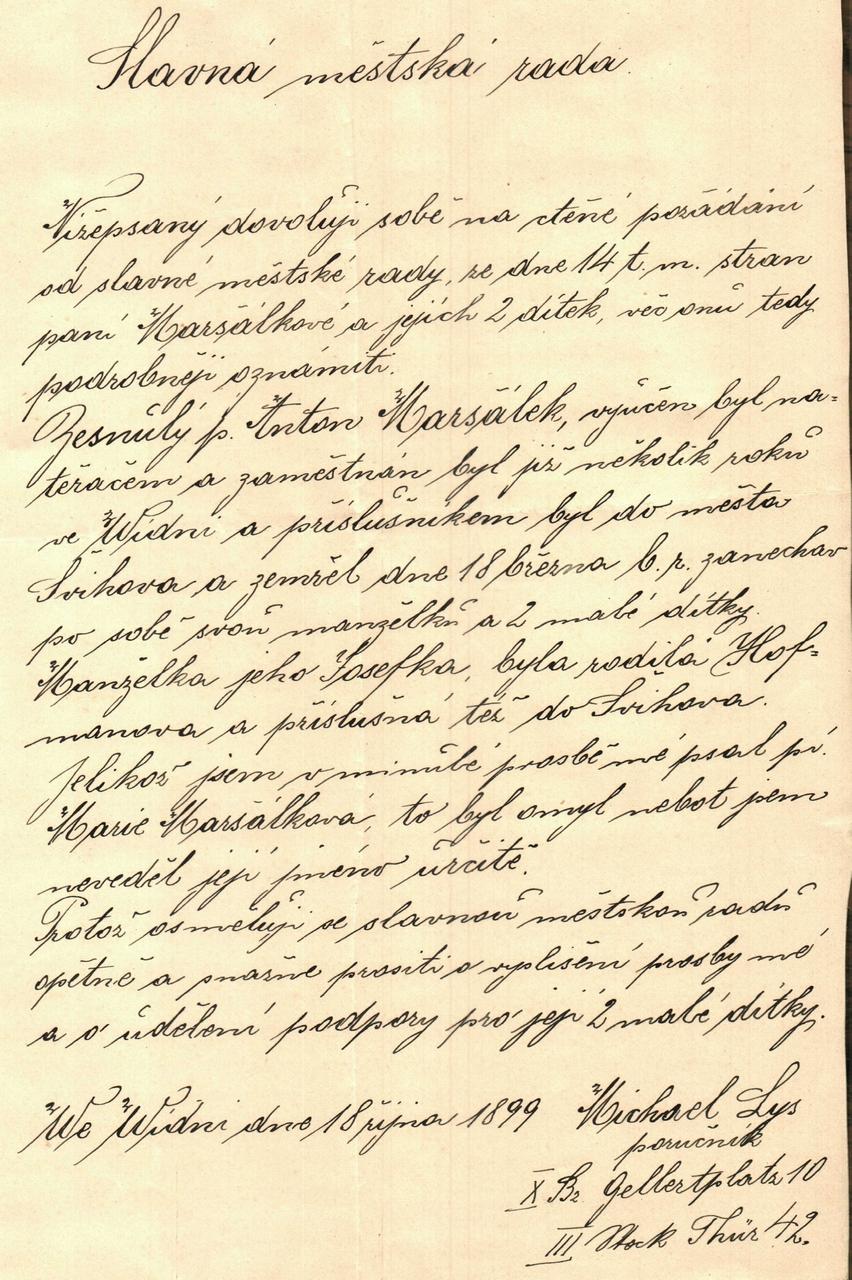 Slavná městská rada.
Nížepsaný dovoluji sobě na ctěné požádání
od slavné městské rady, ze dne 14 t. m. stran
paní Maršálkové a jejich 2 dítek, věc onu tedy
podrobněji oznámiti.
Zesnulý p. Anton Maršálek, vyučen byl na=
těračem a zaměstnán byl již několik roků
ve Wídni a příslušníkem byl do města
Švihova a zemřel dne 18 března b. r. zanechav
po sobě svou manželku a 2 malé dítky.
Manželka jeho Josefka, byla rodilá Hof=
manova a příslušná též do Švihova.
Jelikož jsem v minulé prosbě mé psal pí.
Marie Maršálková, to byl omyl neboť jsem
nevěděl její jméno určitě.
Protož osměluji se slavnou městskou radu
opětně a snažně prositi o vyplišení prosby mé
a o udělení podpory pro její 2 malé dítky.
We Wídni dne 18 října 1899 Michael Lys
poručník
X Bz. Gellertplatz 10
III Stock Thür 42.